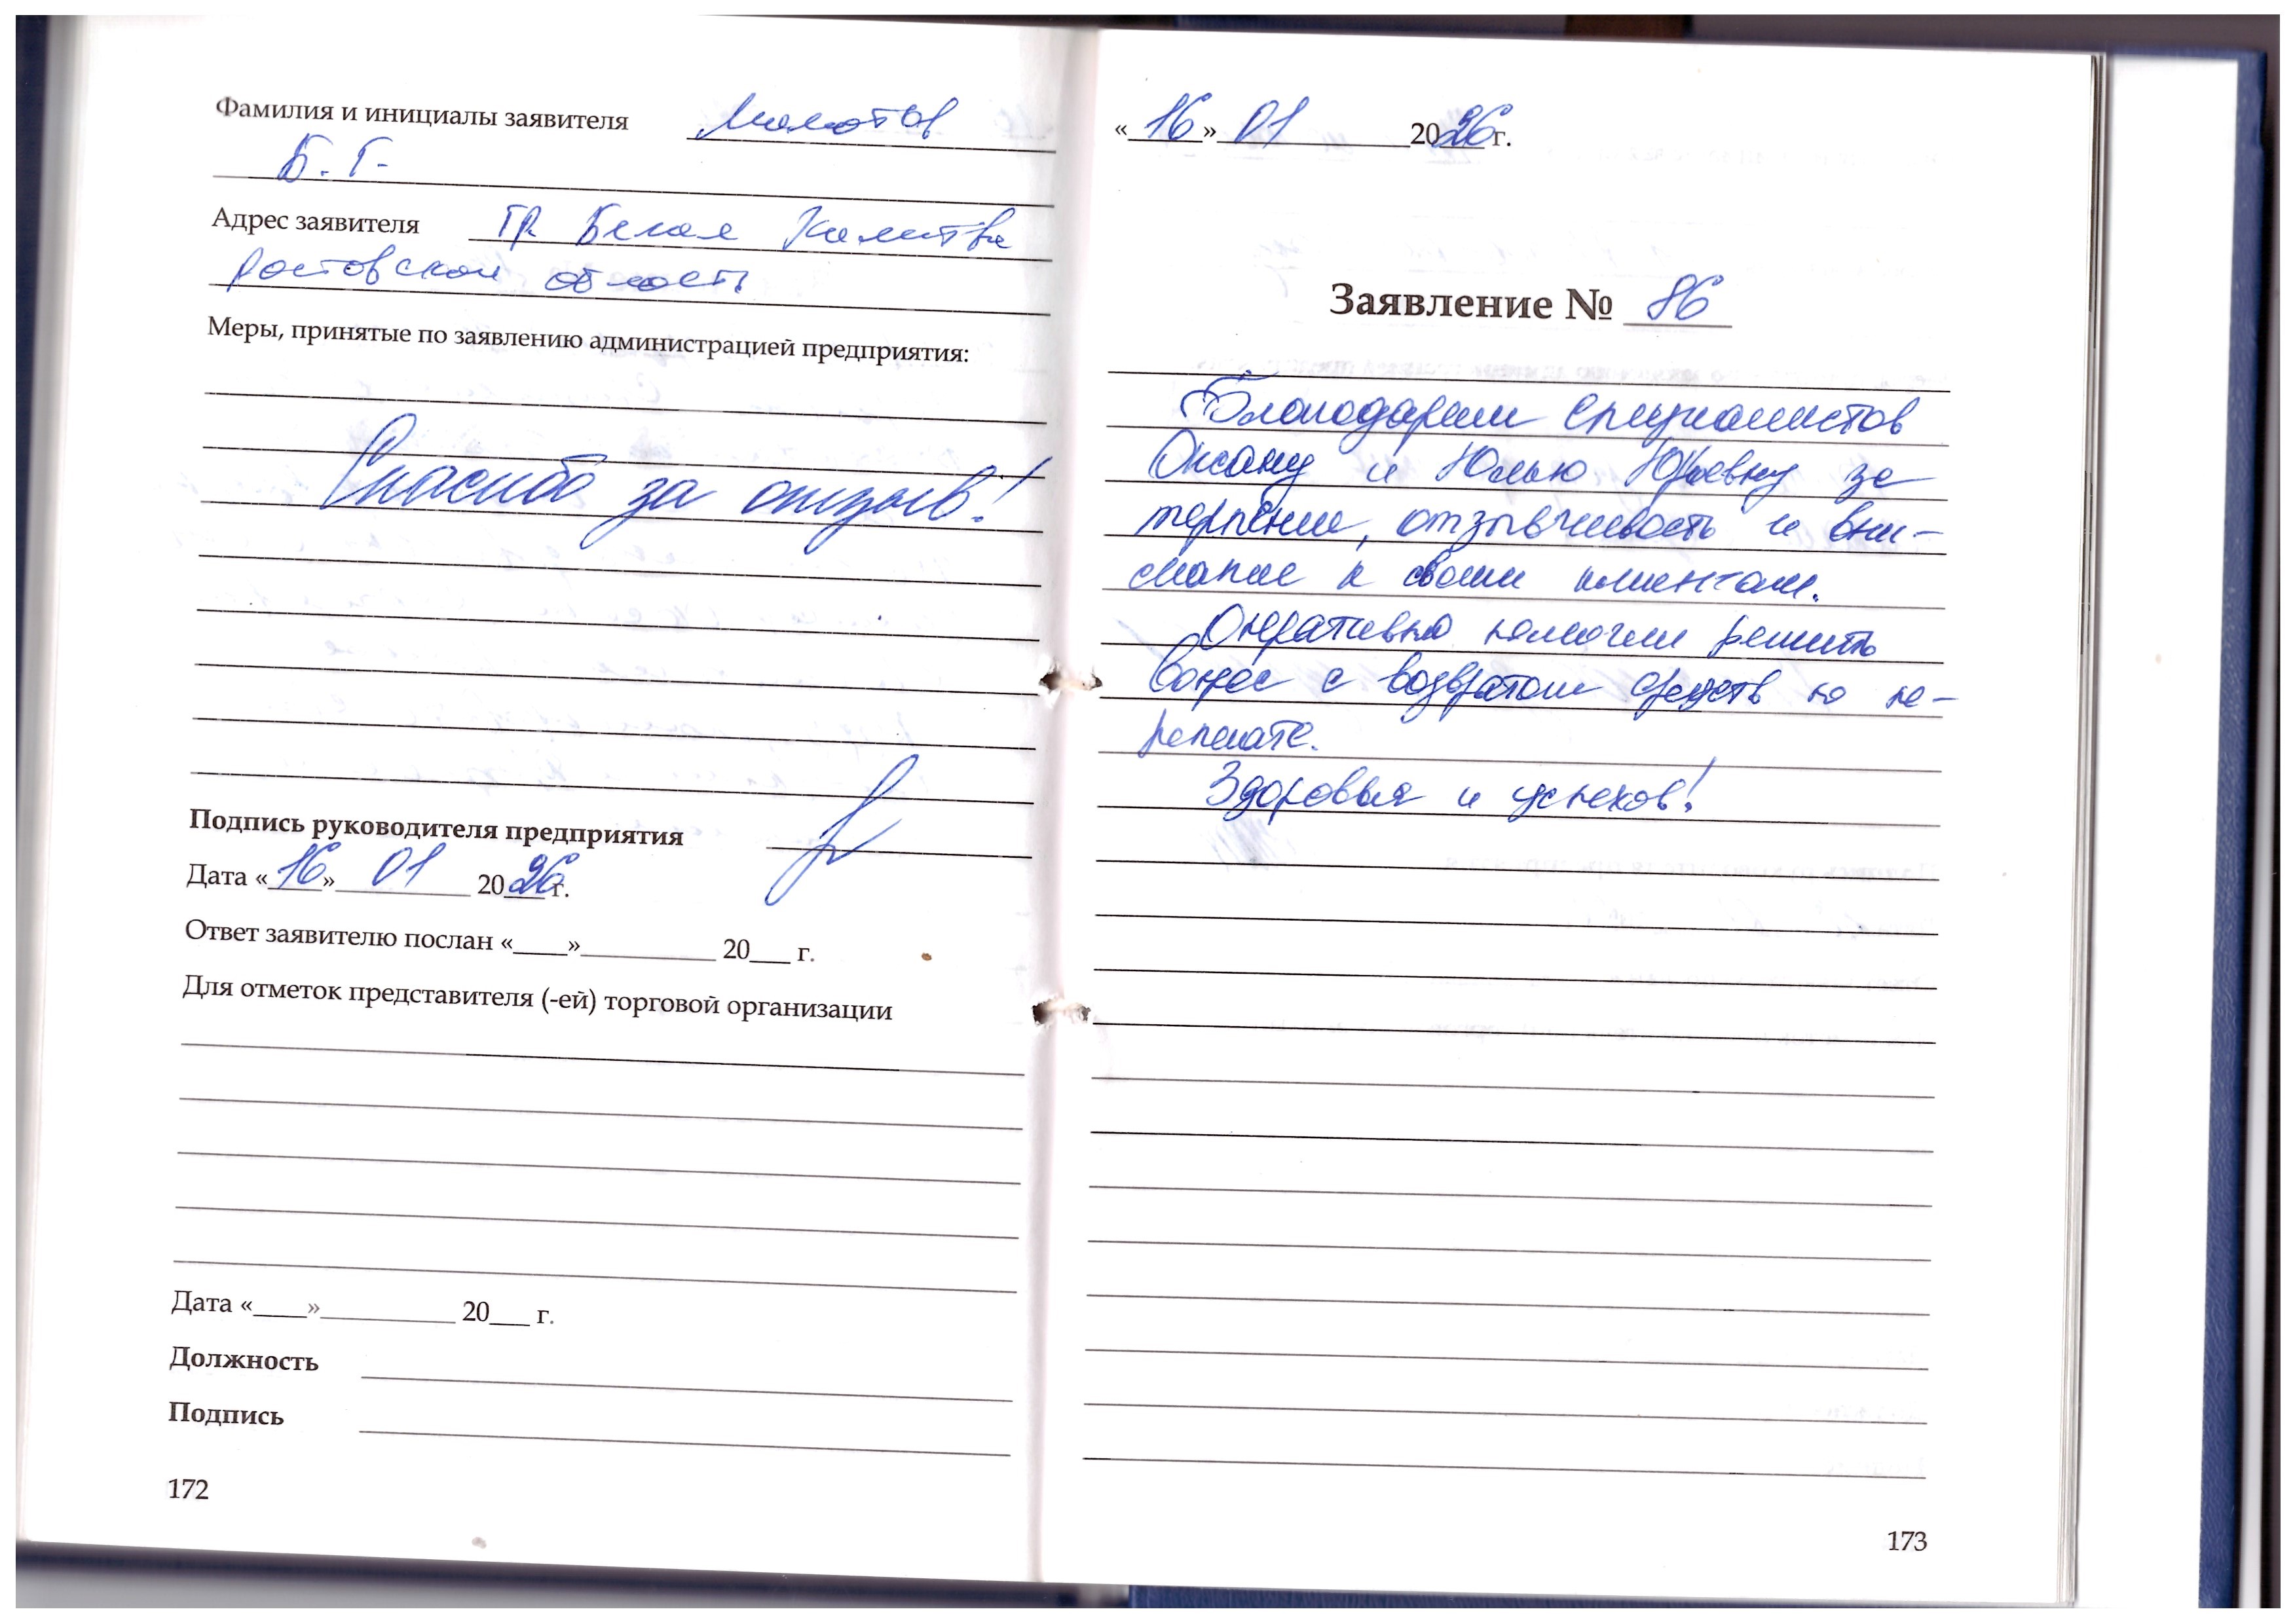 Фамилия и инициалы заявителя Молотов
Б. Г.
Адрес заявителя гр Белая Калитва
Ростовской области
Меры, принятые по заявлению администрацией предприятия:
Спасибо за отзыв!
Подпись руководителя предприятия
Дата «16» 01 2026 г.
Ответ заявителю послан «____»__________ 20___ г.
Для отметок представителя (-ей) торговой организации
Дата «____»__________ 20___ г.
Должность
Подпись
172
«16» 01 2026 г.
Заявление № 86
Благодарим специалистов
Оксану и Юлью Юрьевну за
терпение, отзывчивость и вни-
мание к своим клиентам.
Оперативно помогли решить
вопрос с возвратом средств по пе-
реплате.
Здоровья и успехов!
173